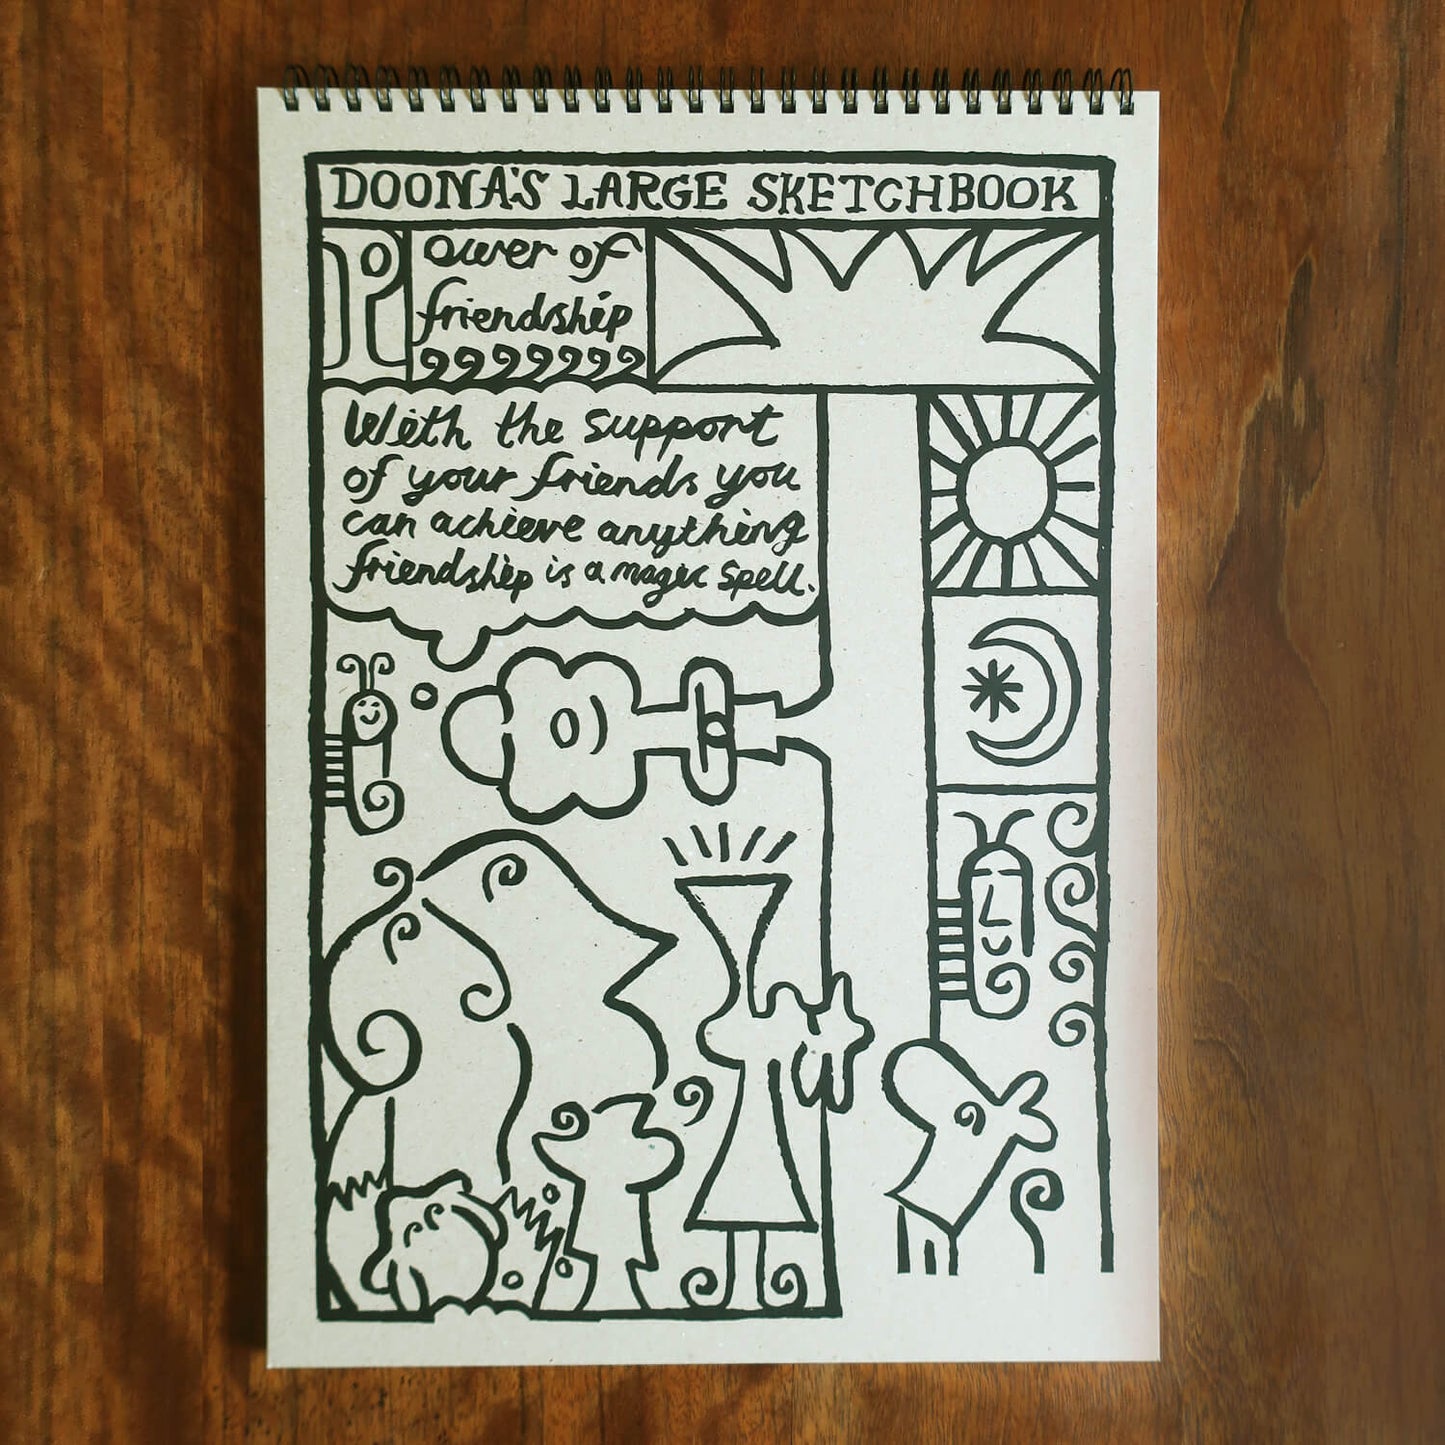 DOONA'S LARGE SKETCHBOOK
Power of
friendship
With the support
of your friends you
can achieve anything
friendship is a magic spell.